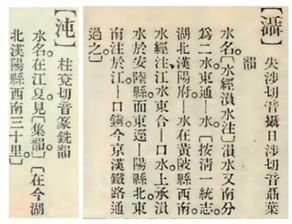 【灄】失涉切音攝日涉切音聶葉
韻
水名〔水經溳水注〕溳水又南分
爲二水東通—水〔按清一統志
湖北漢陽府—水在黃陂縣西南
水經注江水東合—口水上承溳
水於安陸縣而東逕—陽縣北東
南注於江—口鎮今京漢鐵路通
過之〕
【沌】柱兗切音篆銑韻
水名在江夏見〔集韻〕〔在今湖
北漢陽縣西南三十里〕